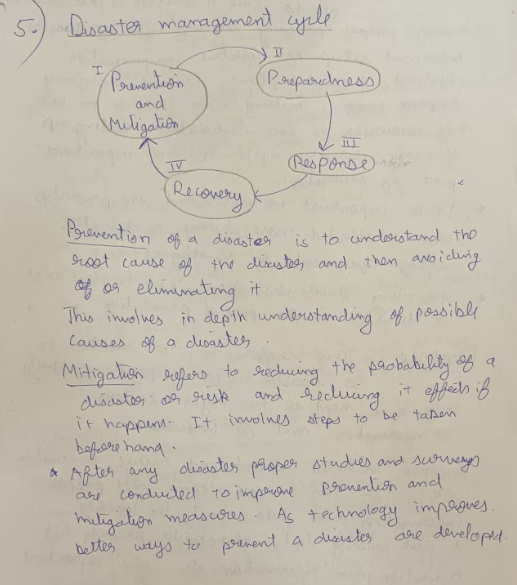 5.) Disaster management cycle
I
Prevention
and
Mitigation
II
Preparidness
III
Response
IV
Recovery
Prevention of a disaster is to understand the
root cause of the disaster and then avoiding
or eliminating it
This involves in depth understanding of possible
causes of a disaster.
Mitigation refers to reducing the probability of a
disaster or risk and reducing it effects if
it happens. It involves steps to be taken
beforehand.
* After any disaster proper studies and surveys
are conducted to improve prevention and
mitigation measures. As technology improves.
better ways to prevent a disaster are developed.